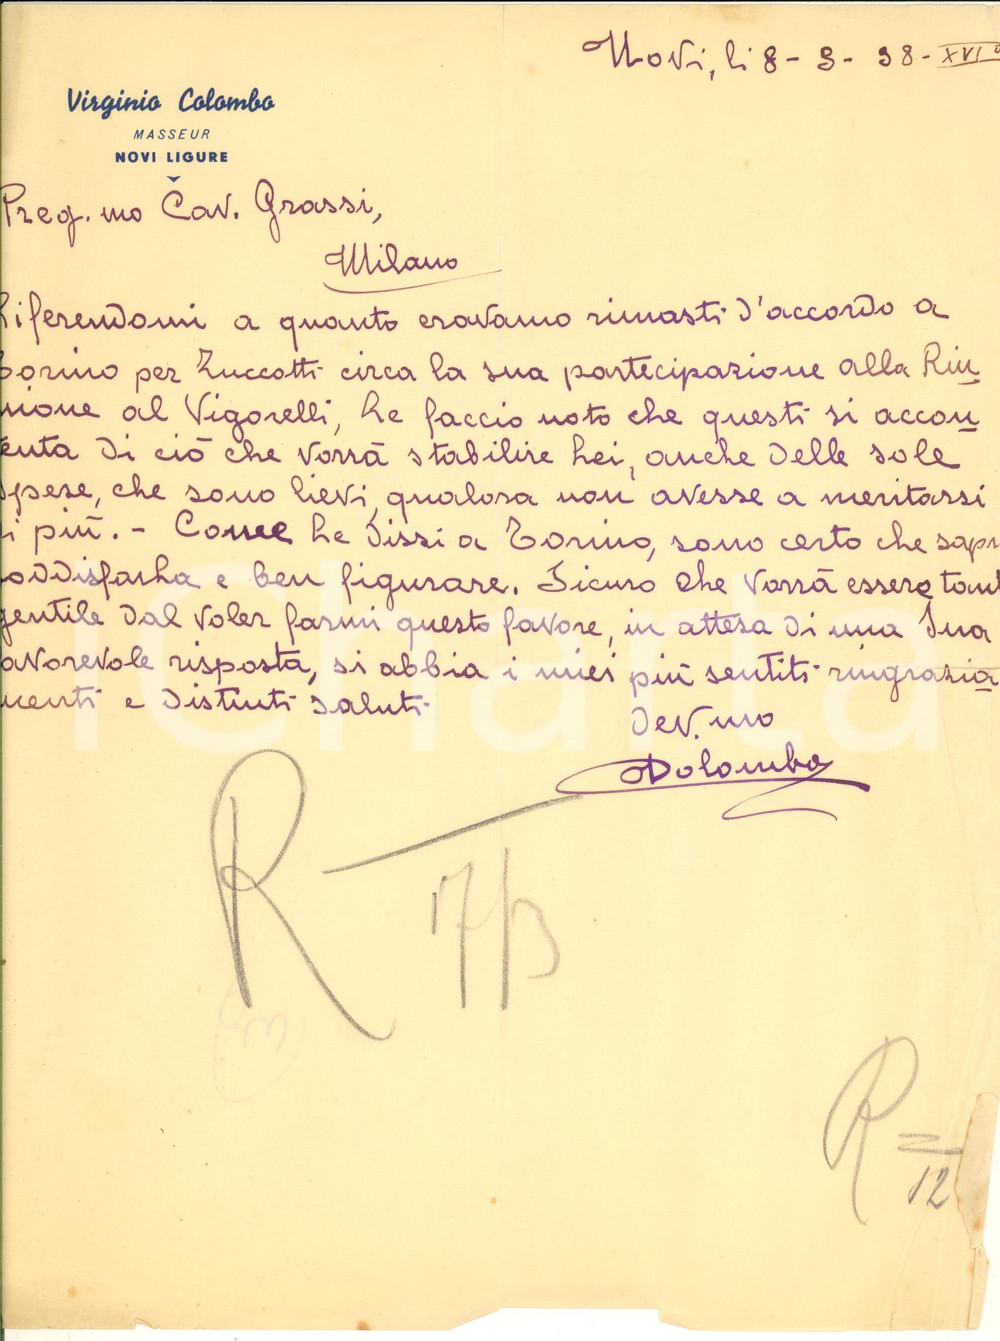 Novi, li 8-3-38-XVI°
Virginio Colombo
MASSEUR
NOVI LIGURE
Preg.mo Cav. Grassi,
Milano
Riferendomi a quanto eravamo rimasti d'accordo a
Torino per Zuccotti circa la sua partecipazione alla Riu
nione al Vigorelli, Le faccio noto che questi si accon
tenta di ciò che vorrà stabilire Lei, anche delle sole
spese, che sono lievi, qualora non avesse a meritarsi
di più. - Come Le dissi a Torino, sono certo che sapr
oddisfarLa e ben figurare. Sicuro che vorrà essere tant
gentile dal voler farmi questo favore, in attesa di una Sua
avorevole risposta, si abbia i miei più sentiti ringrazia
menti e distinti saluti
dev.mo
Colombo
R 17/3
R =
12
iCharta